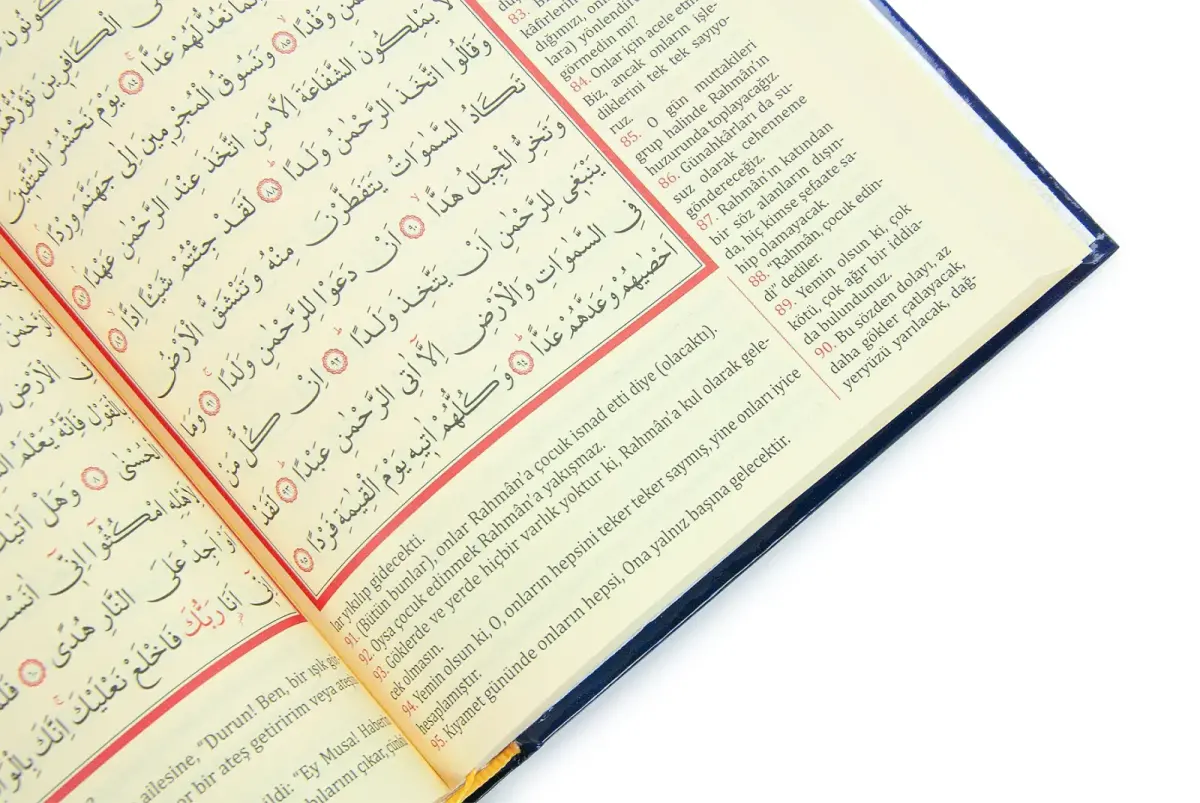 كُونُونَ
ى الْكَافِرِينَ تَؤُزُّهُمْ
نَعُدُّ لَهُمْ عَدًّا ﴿٨٤﴾ يَوْمَ نَحْشُرُ الْمُتَّقِينَ
وَفْدًا ﴿٨٥﴾ وَنَسُوقُ الْمُجْرِمِينَ اِلٰى جَهَنَّمَ وِرْدًا ﴿٨٦﴾
لَا يَمْلِكُونَ الشَّفَاعَةَ اِلَّا مَنِ اتَّخَذَ عِنْدَ الرَّحْمٰنِ عَهْدًا ﴿٨٧﴾
وَقَالُوا اتَّخَذَ الرَّحْمٰنُ وَلَدًا ﴿٨٨﴾ لَقَدْ جِئْتُمْ شَيْـًٔا اِدًّا ﴿٨٩﴾
تَكَادُ السَّمٰوَاتُ يَتَفَطَّرْنَ مِنْهُ وَتَنْشَقُّ الْاَرْضُ
وَتَخِرُّ الْجِبَالُ هَدًّا ﴿٩٠﴾ اَنْ دَعَوْا لِلرَّحْمٰنِ وَلَدًا ﴿٩١﴾ وَمَا
يَنْبَغِي لِلرَّحْمٰنِ اَنْ يَتَّخِذَ وَلَدًا ﴿٩٢﴾ اِنْ كُلُّ مَنْ
فِي السَّمٰوَاتِ وَالْاَرْضِ اِلَّٓا اٰتِي الرَّحْمٰنِ عَبْدًا ﴿٩٣﴾ لَقَدْ
اَحْصٰيهُمْ وَعَدَّهُمْ عَدًّا ﴿٩٤﴾ وَكُلُّهُمْ اٰتِيهِ يَوْمَ الْقِيٰمَةِ فَرْدًا ﴿٩٥﴾
83.
kâfirlerin
dığımızı, onl
lara) yönlendir
görmedin mi?
84. Onlar için acele etme
Biz, ancak onların işle-
diklerini tek tek sayıyo-
ruz.
85. O gün muttakileri
grup halinde Rahmân'ın
huzurunda toplayacağız.
86. Günahkârları da su-
suz olarak cehenneme
göndereceğiz.
87. Rahmân'ın katından
bir söz alanların dışın-
da, hiç kimse şefaate sa-
hip olamayacak
88. "Rahmân, çocuk edin-
di" dediler.
89. Yemin olsun ki, çok
kötü, çok ağır bir iddia-
da bulundunuz.
90. Bu sözden dolayı, az
daha gökler çatlayacak,
yeryüzü yarılacak, dağ-
lar yıkılıp gidecekti.
91. (Bütün bunlar), onlar Rahmân'a çocuk isnad etti diye (olacaktı).
92. Oysa çocuk edinmek Rahmân'a yakışmaz.
93. Göklerde ve yerde hiçbir varlık yoktur ki, Rahmân'a kul olarak gele-
cek olmasın.
94. Yemin olsun ki, O, onların hepsini teker teker saymış, yine onları iyice
hesaplamıştır.
95. Kıyamet gününde onların hepsi, Ona yalnız başına gelecektir.
الْاَرْضِ
بِالْقَوْلِ فَاِنَّهُ يَعْلَمُ
الْحُسْنٰى ﴿٨﴾ وَهَلْ اَتٰيكَ
لِاَهْلِهِ امْكُثُٓوا اِنِّٓي اٰنَسْتُ
اَوْ اَجِدُ عَلَى النَّارِ هُدًى ﴿١٠﴾ فَلَمَّٓا
اِنِّٓي اَنَا۬ رَبُّكَ فَاخْلَعْ نَعْلَيْكَ اِنَّكَ بِالْوَادِ
ailesine, "Durun! Ben, bir ışık
or bir ateş getiririm veya ateşin
ldi: "Ey Musa! Haberin
bılarını çıkar, çünkü